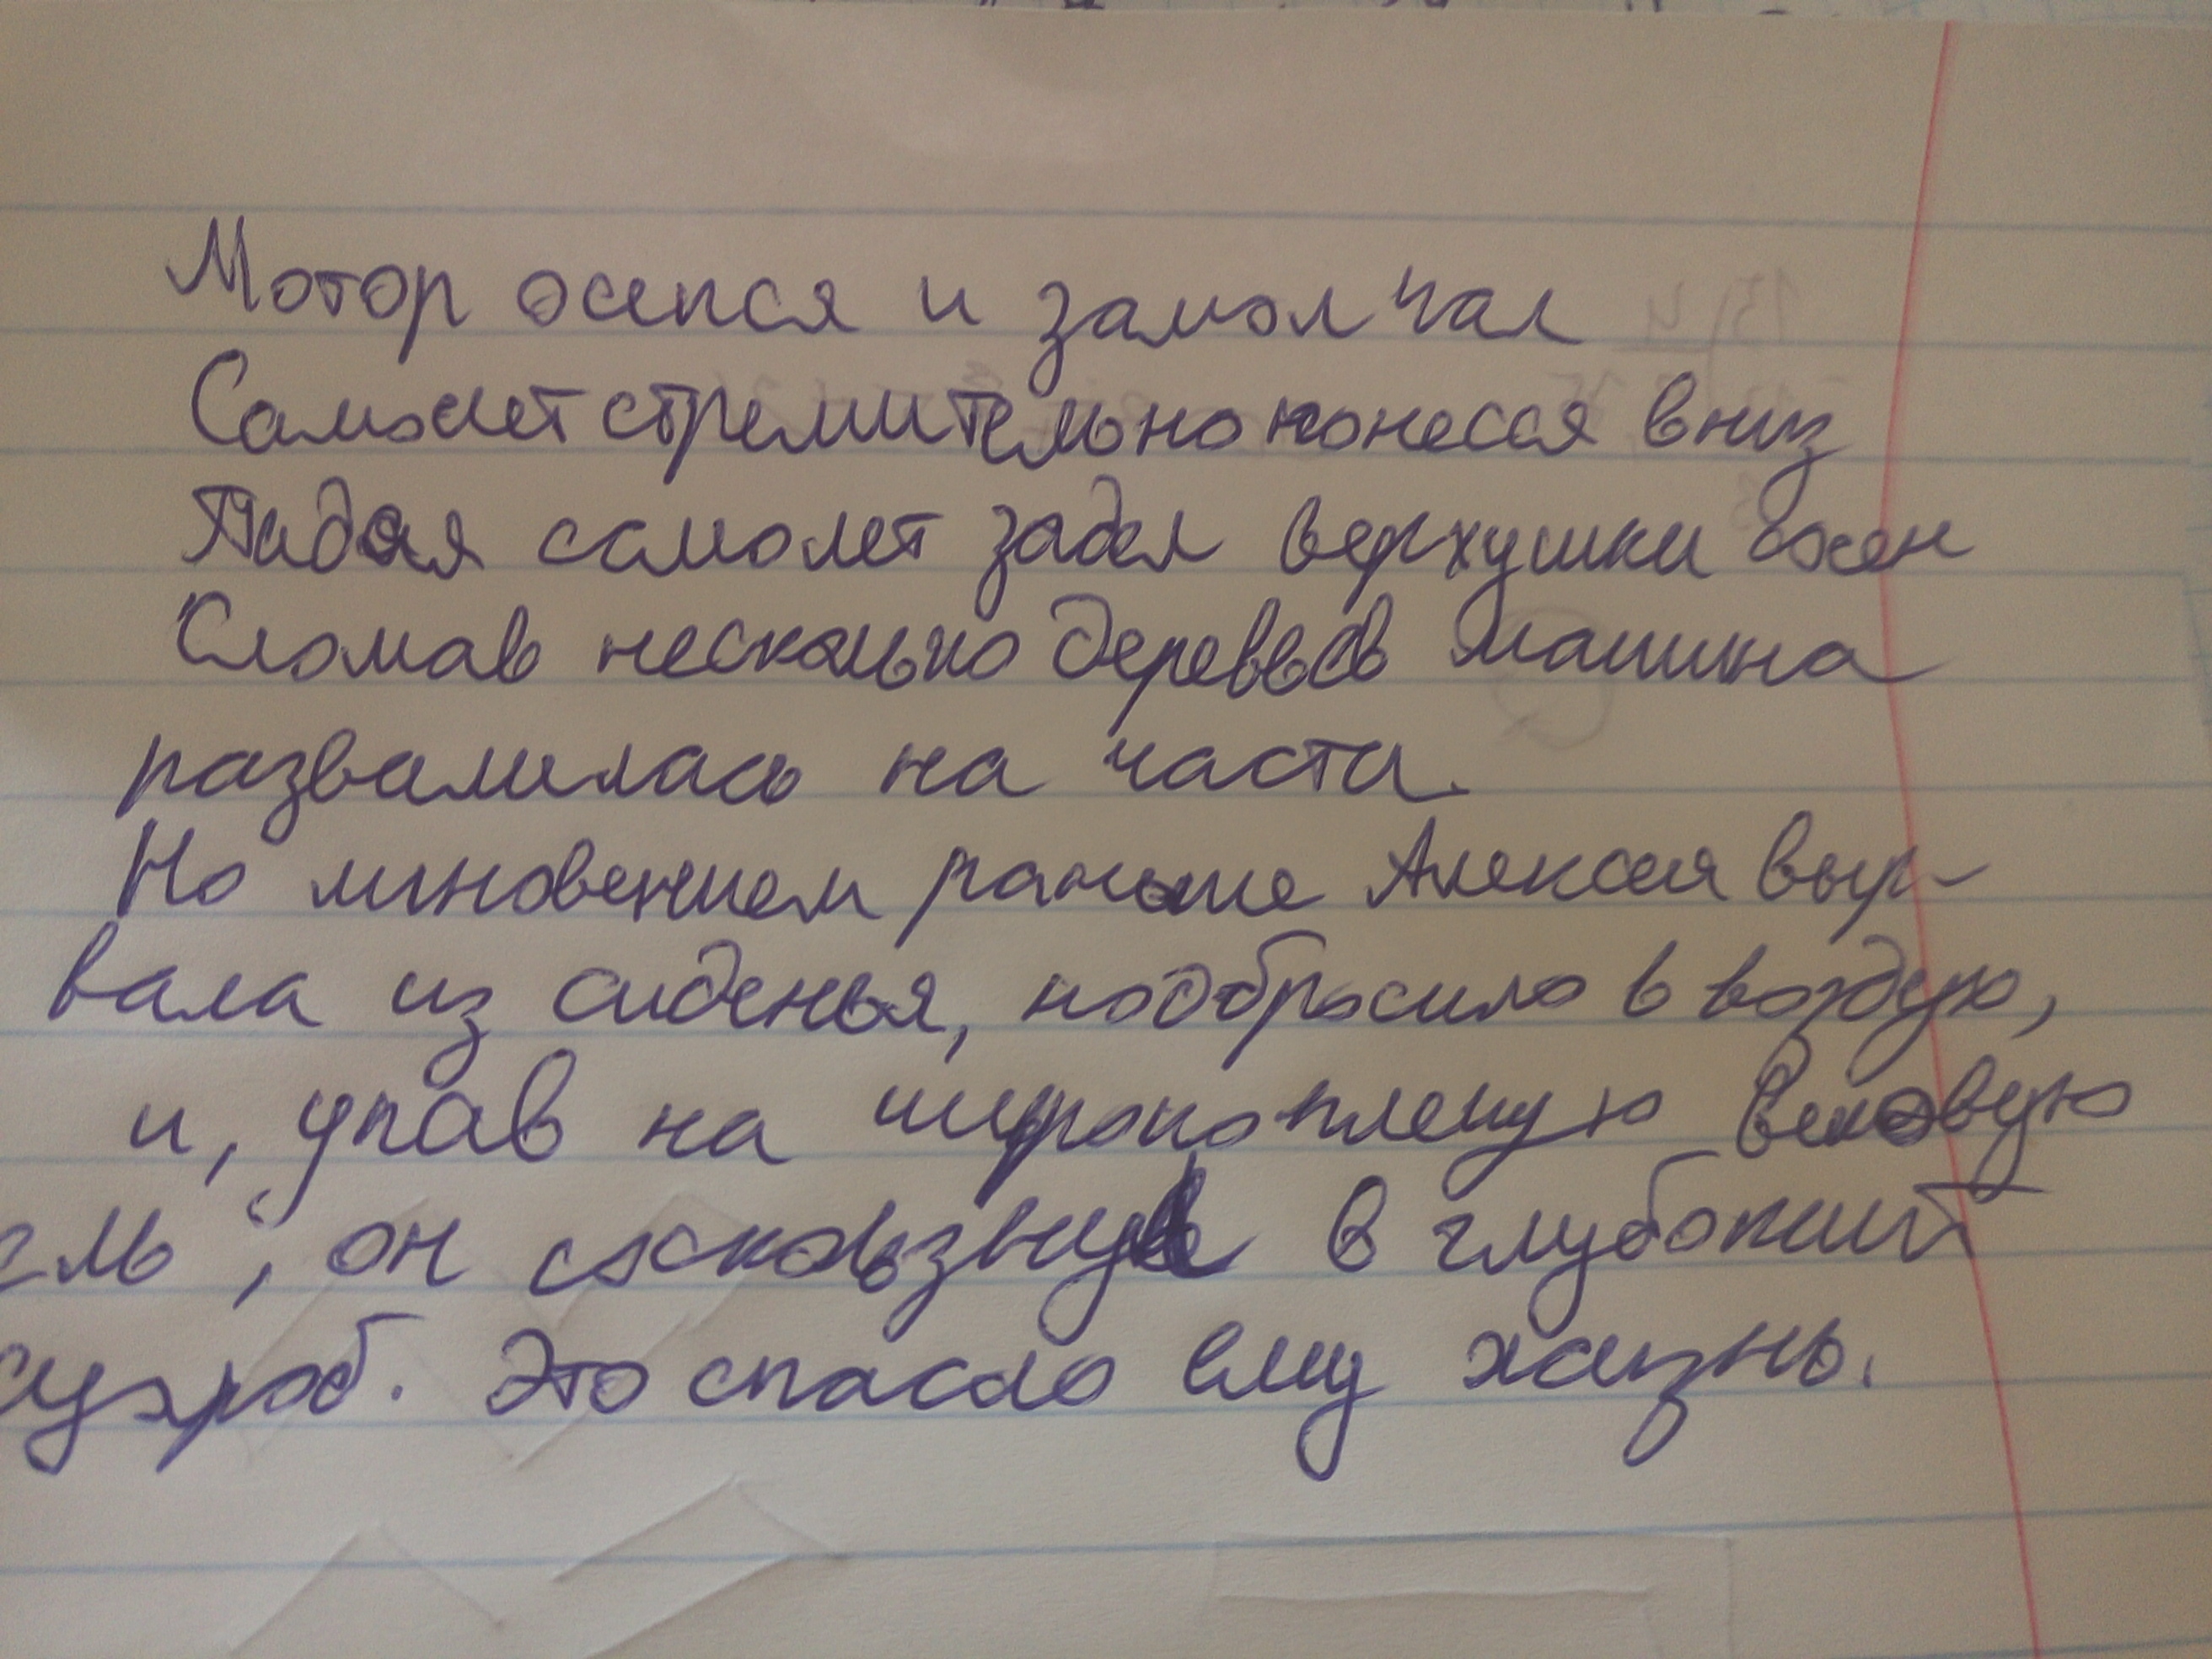 Мотор осепся и замолчал
Самолет стремительно понесся вниз
Падая самолет задел верхушки сосен
Сломав несколько деревьев машина
развалилась на части.
Но мгновением раньше Алексея выр-
вала из сиденья, подбросило в воздух,
и, упав на широкоплечую вековую
ель, он соскользнул в глубокий
сугроб. Это спасло ему жизнь.